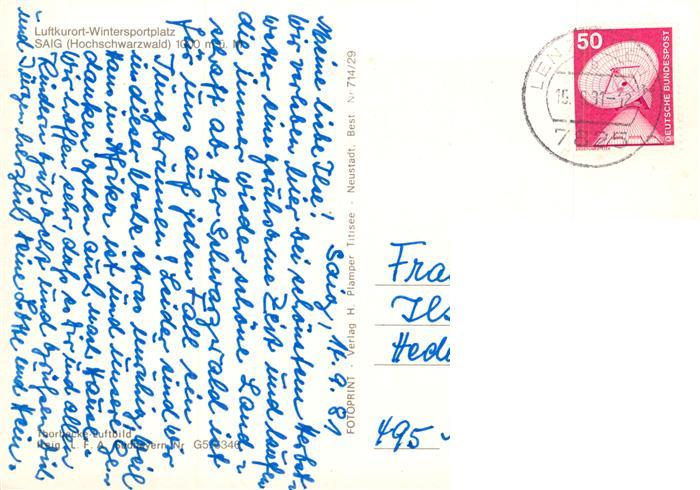 Luftkurort-Wintersportplatz
SAIG (Hochschwarzwald) 1000 m ü. M.
Saig, 14. 9. 81
Meine liebe Ilse!
Wir verleben hier bei schönstem Herbst-
wetter eine geruhsame Zeit und laufen
die immer wieder schöne Land-
schaft ab. Der Schwarzwald ist
für uns auf jeden Fall ein
Jungbrunnen! Leider sind wir
in dieser Woche etwas unruhig weil
in Afrika ist und unsere Ge-
danken eben auch
Wir hoffen sehr, daß es Dir und allen
Kindern gut geht und grüßen Dich
und Jürgen herzlich Deine Lotte und Hein.
Thorbecke-Luftbild
Freig. L. F. A. Südbayern Nr G5/8346
FOTOPRINT - Verlag H. Plamper Titisee - Neustadt. Best Nr 714/29
LENZ
15.
7825
50
DEUTSCHE BUNDESPOST
Fra
Ils
Hede
495-